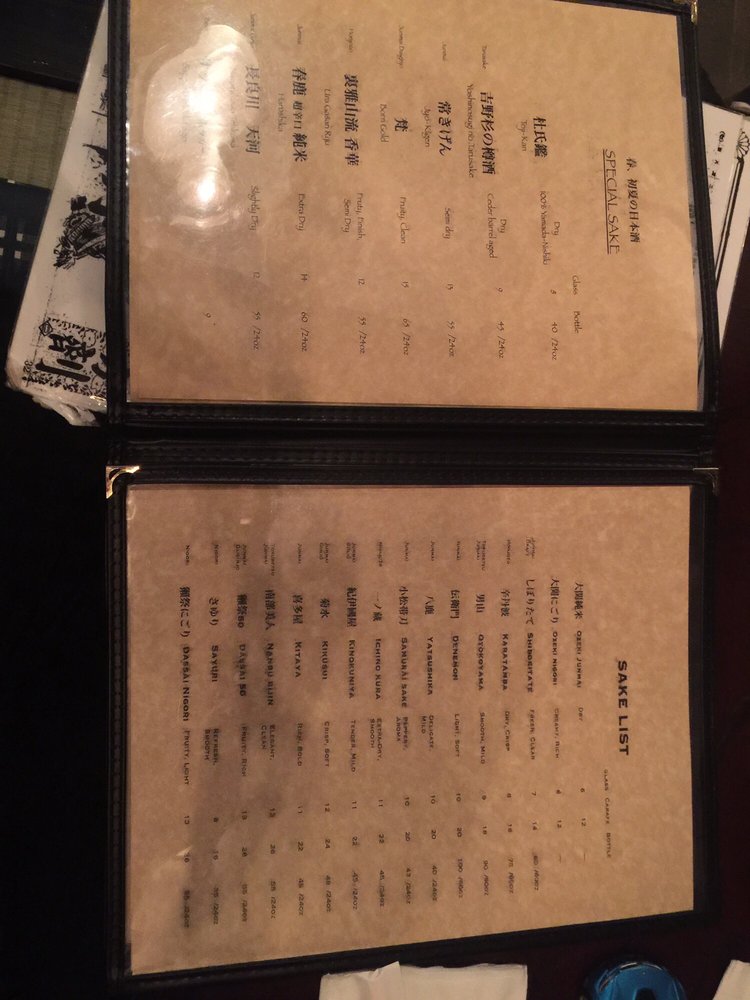 春、初夏の日本酒
SPECIAL SAKE
Glass Bottle
杜氏鑑 Dry 8 40 /24oz
Toji-Kan 100% Yamada-Nishiki
Tarusake 吉野杉の樽酒 Dry 9 45 /24oz
Yoshinosugi no Tarusake Ceder barrel aged
Junmai 常きげん Semi dry 13 55 /24oz
Jyo-Kigen
Junmai Daiginjo 梵 Fruity, Clean 15 65 /24oz
Born Gold
Honjozo 裏雅山流 香華 Fruity, Finish, 12 55 /24oz
Ura Gasan Ryu Semi Dry
Junmai 春鹿 超辛口 純米 Extra Dry 14 60 /24oz
Harushika
長良川 天河 Slightly Dry 12 55 /24oz
9
SAKE LIST
GLASS CARAFE BOTTLE
大関純米 OZEKI JUNMAI DRY 6 12 —
大関にごり OZEKI NIGORI CREAMY, RICH 6 12 —
しぼりたて SHIBORITATE FRESH, CLEAR 7 14
辛丹波 KARATANBA DRY, CRISP 8 16 75
男山 OTOKOYAMA SMOOTH, MILD 9 18 90
JUNMAI 伝衛門 DENEMON LIGHT, SOFT 10 20 100
JUNMAI 八鹿 YATSUSHIKA DELICATE, MILD 10 20 40 /24OZ
JUNMAI 小松帯刀 SAMURAI SAKE PEPPERY AROMA 10 20 43 /24OZ
HONJOZO 一ノ蔵 ICHINO KURA EXTRA-DRY, SMOOTH 11 22 45 /24OZ
紀伊國屋 KINOKUNIYA TENDER, MILD 11 22 45 /24OZ
菊水 KIKUSUI CRISP, SOFT 12 24 48 /24OZ
JUNMAI 喜多屋 KITAYA RICH, BOLD 11 22 45 /24OZ
南部美人 NANBU BIJIN ELEGANT, CLEAN 13 26 55 /24OZ
獺祭50 DASSAI 50 FRUITY, RICH 13 26 55 /24OZ
NIGORI さゆり SAYURI REFRESH, SMOOTH 8 35 /24OZ
NIGORI 獺祭にごり DASSAI NIGORI FRUITY, LIGHT 13 /24OZ